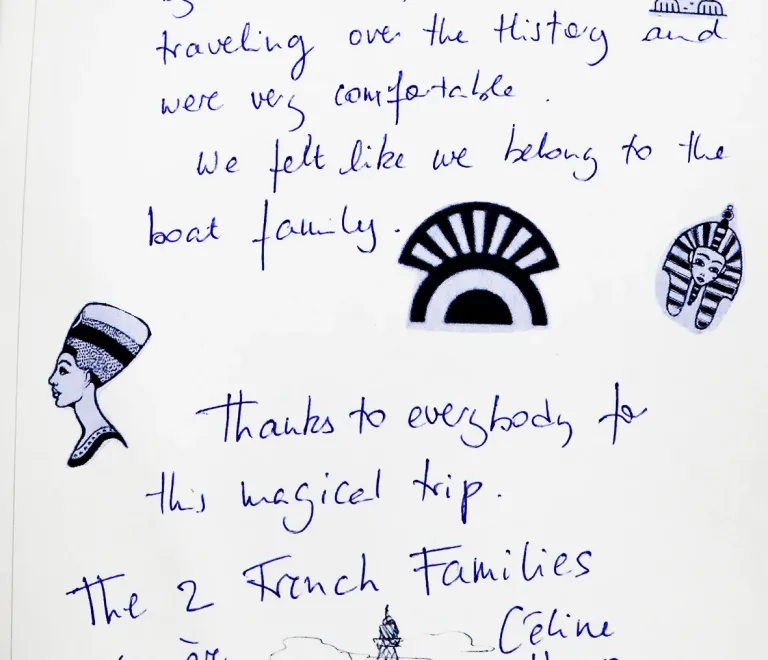 traveling over the History and
were very comfortable.
We felt like we belong to the
boat family.
Thanks to everybody for
this magical trip.
The 2 French Families
Céline